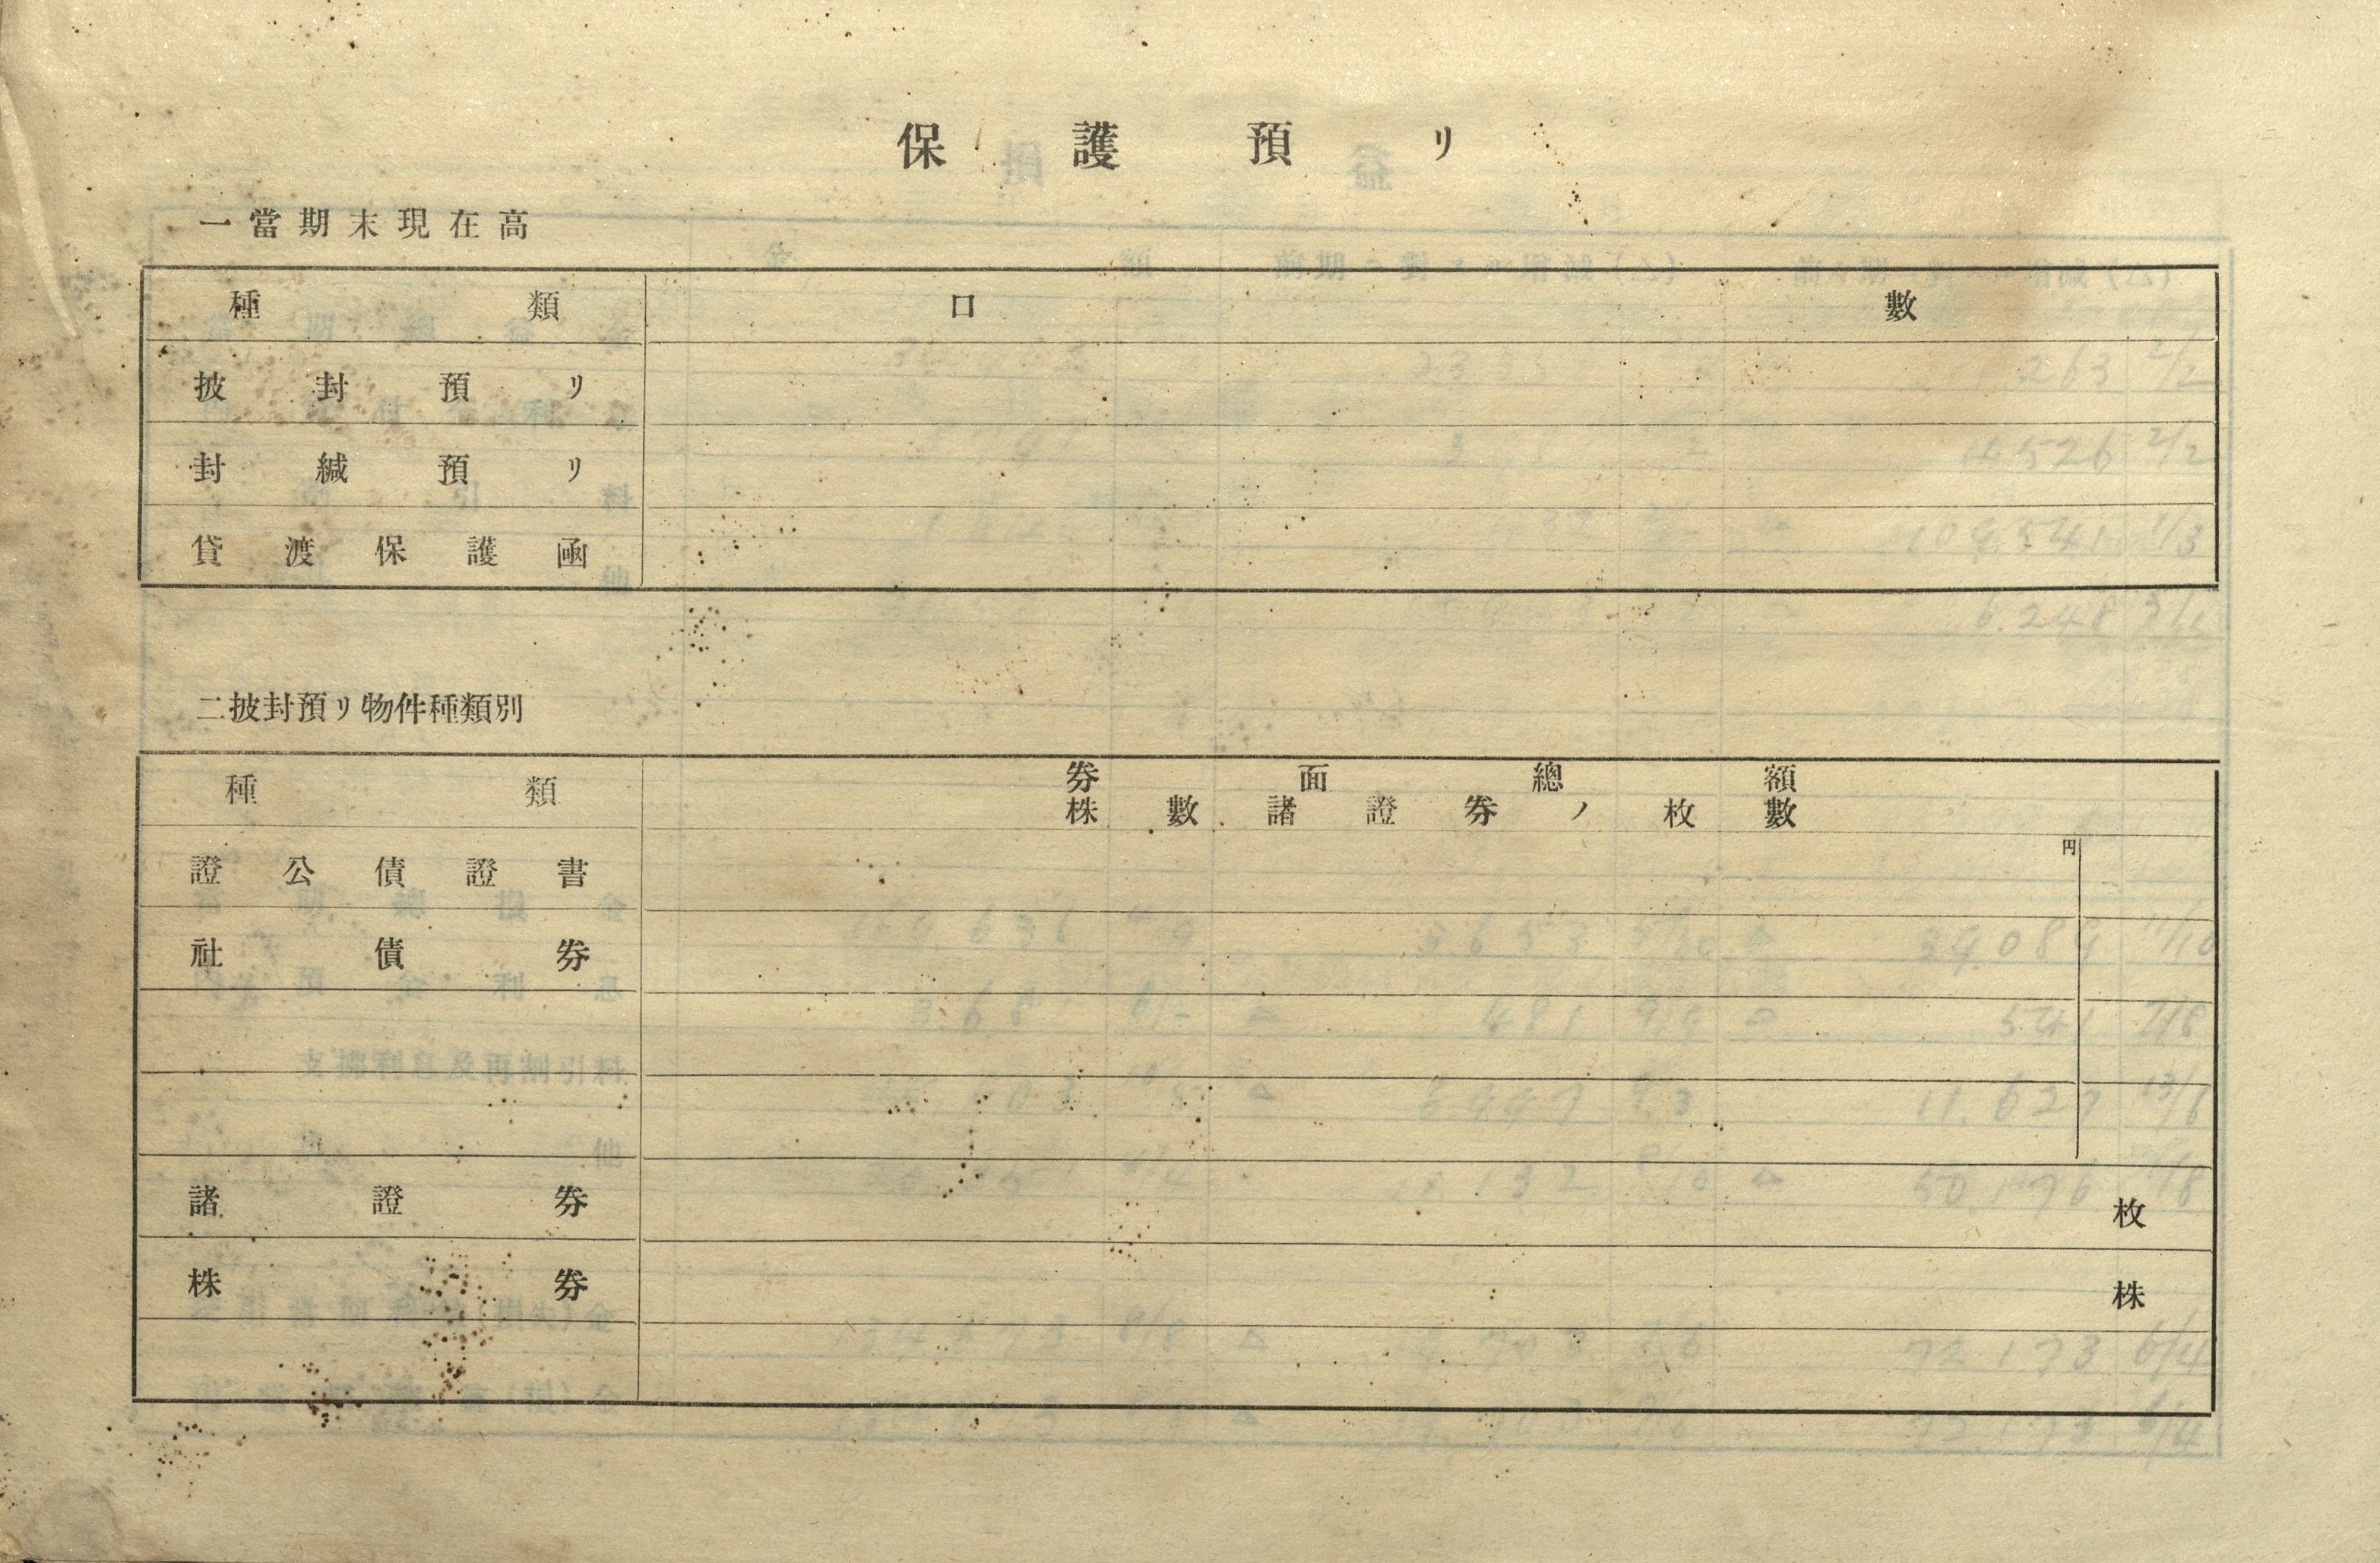 保護預リ
一當期末現在高
種類 口數
披封預リ
封緘預リ
貸渡保護凾
二披封預リ物件種類別
種類 券面總額
株數諸證券ノ枚數
證公債證書 円
社債券
諸證券 枚
株券 株